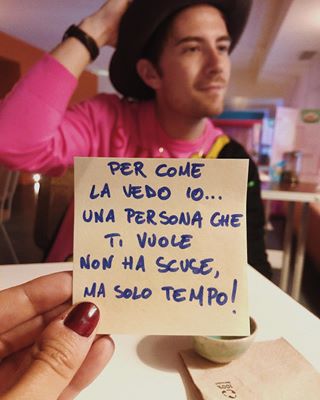 PER COME
LA VEDO IO...
UNA PERSONA CHE
TI VUOLE
NON HA SCUSE,
MA SOLO TEMPO!
100%